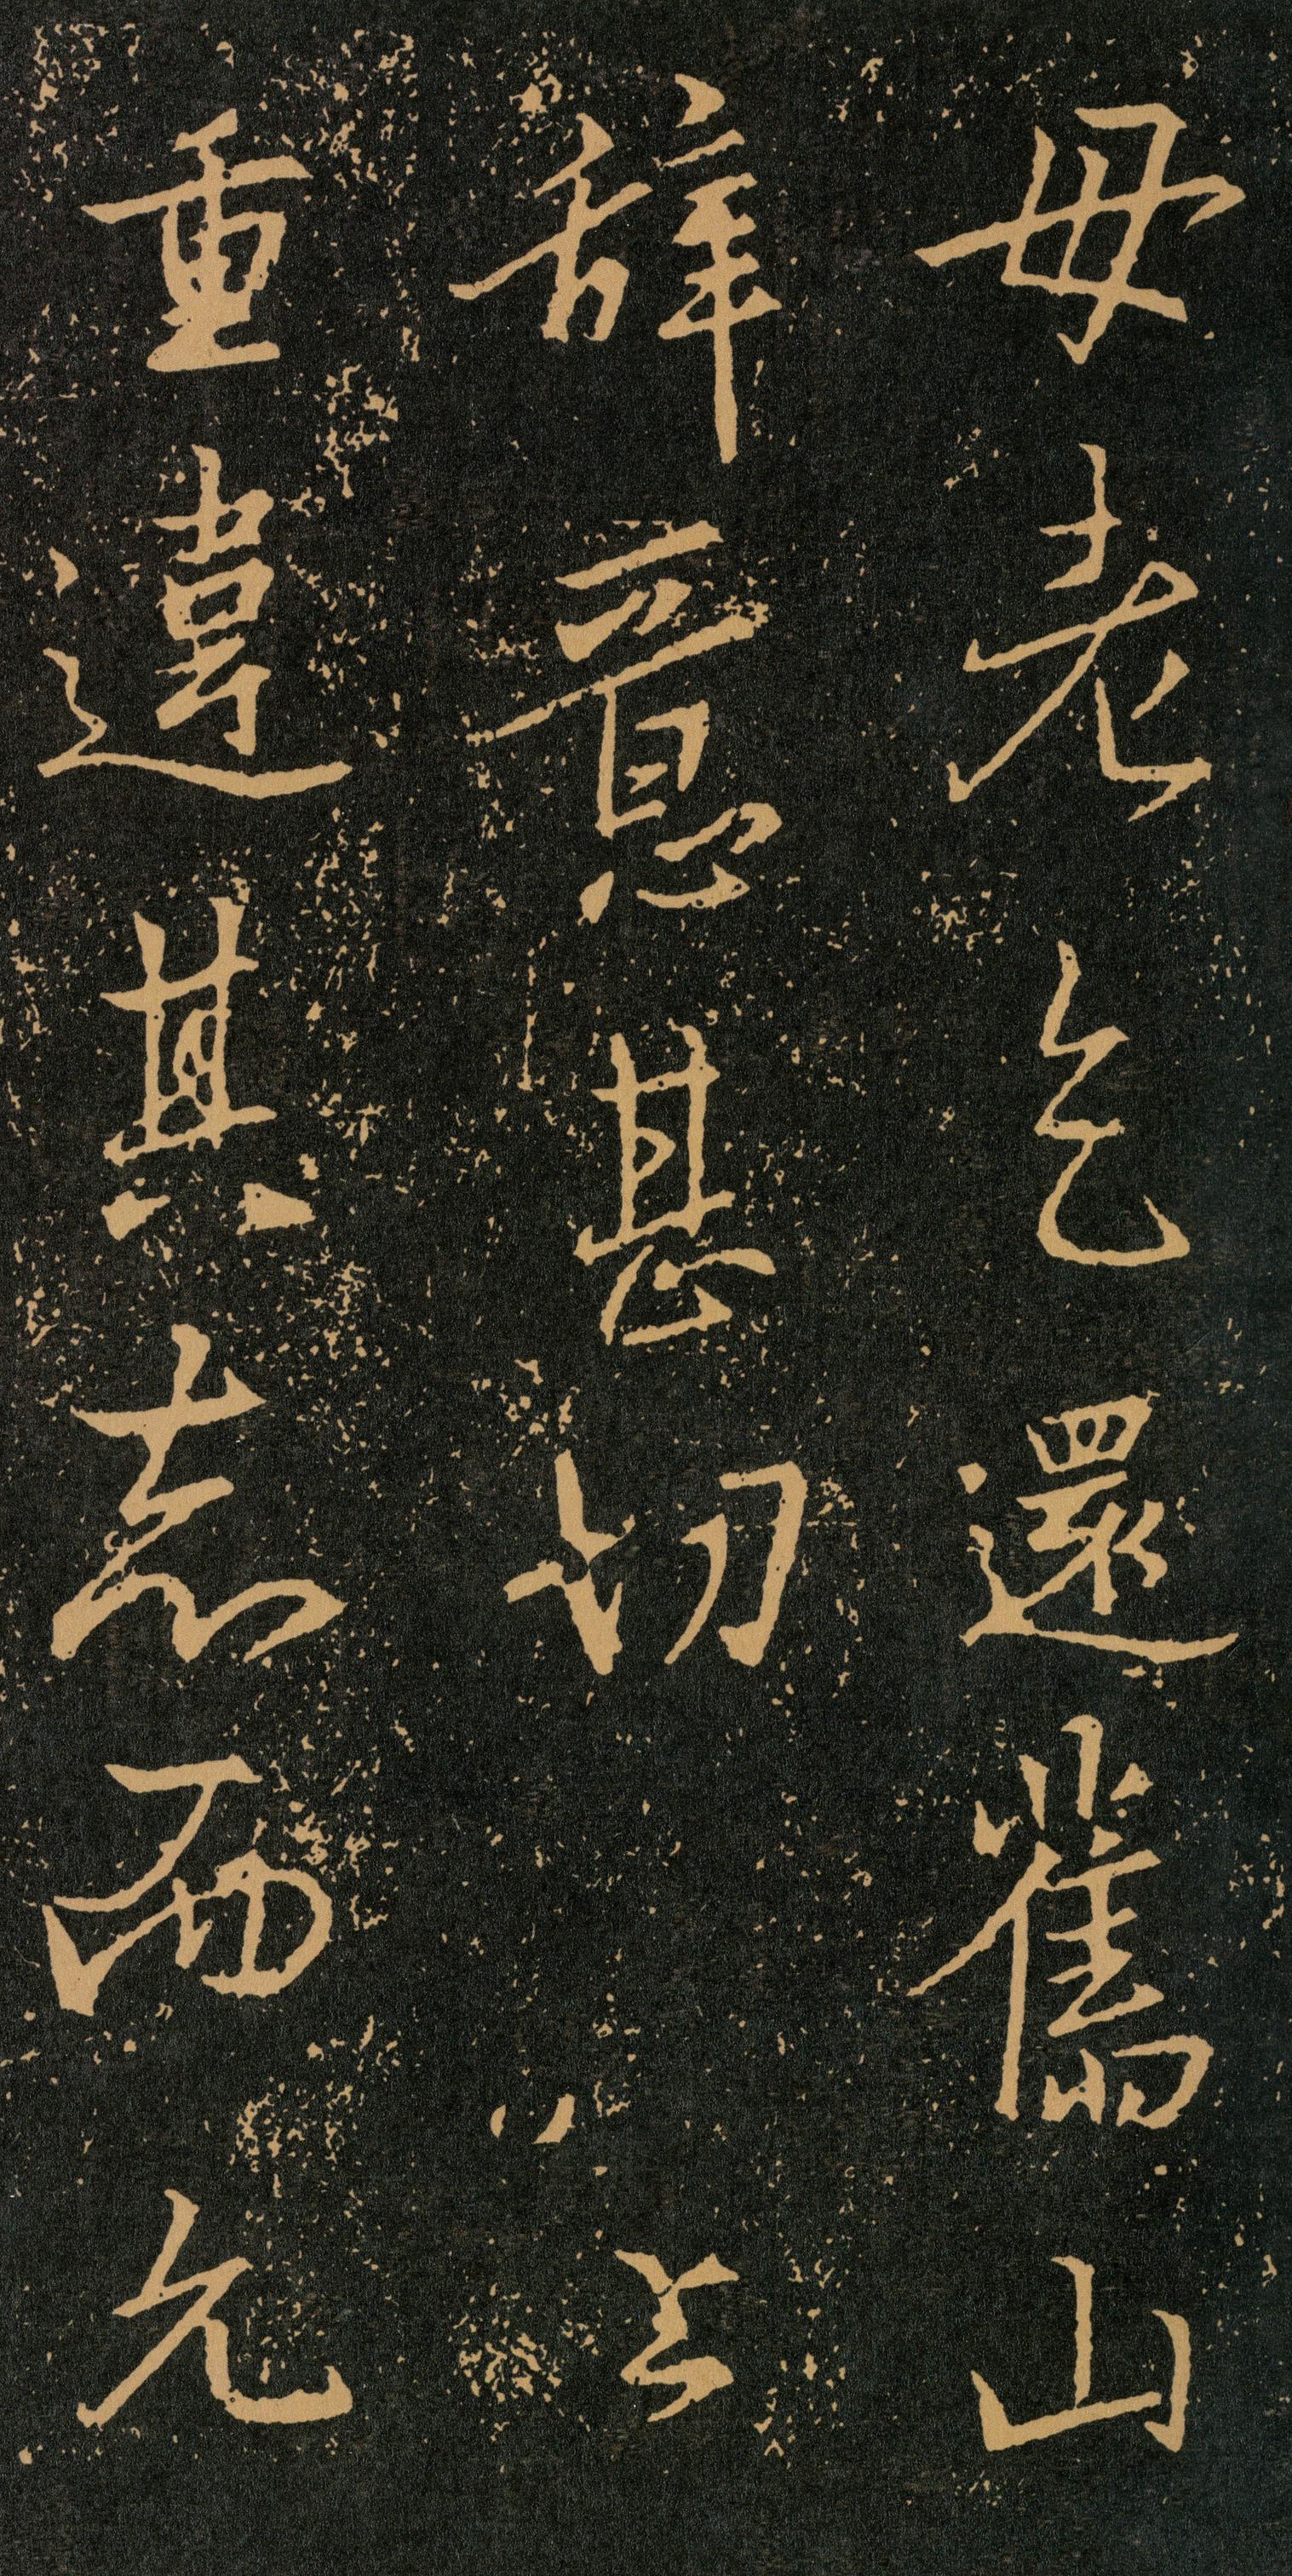 母老乞還舊山
辞意甚切上
重違其志而允